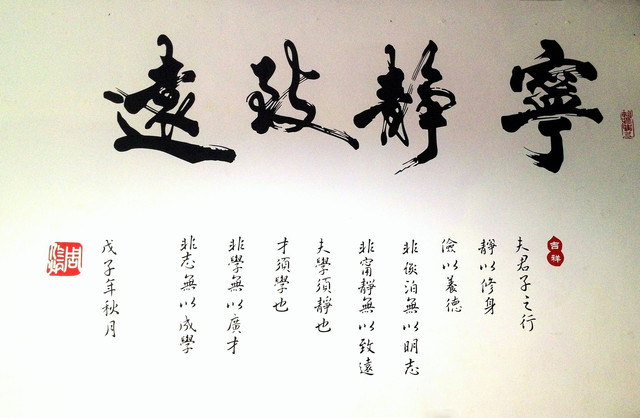 寧靜致遠
吉祥
夫君子之行
靜以修身
儉以養德
非淡泊無以明志
非甯靜無以致遠
夫學須靜也
才須學也
非學無以廣才
非志無以成學
戊子年秋月